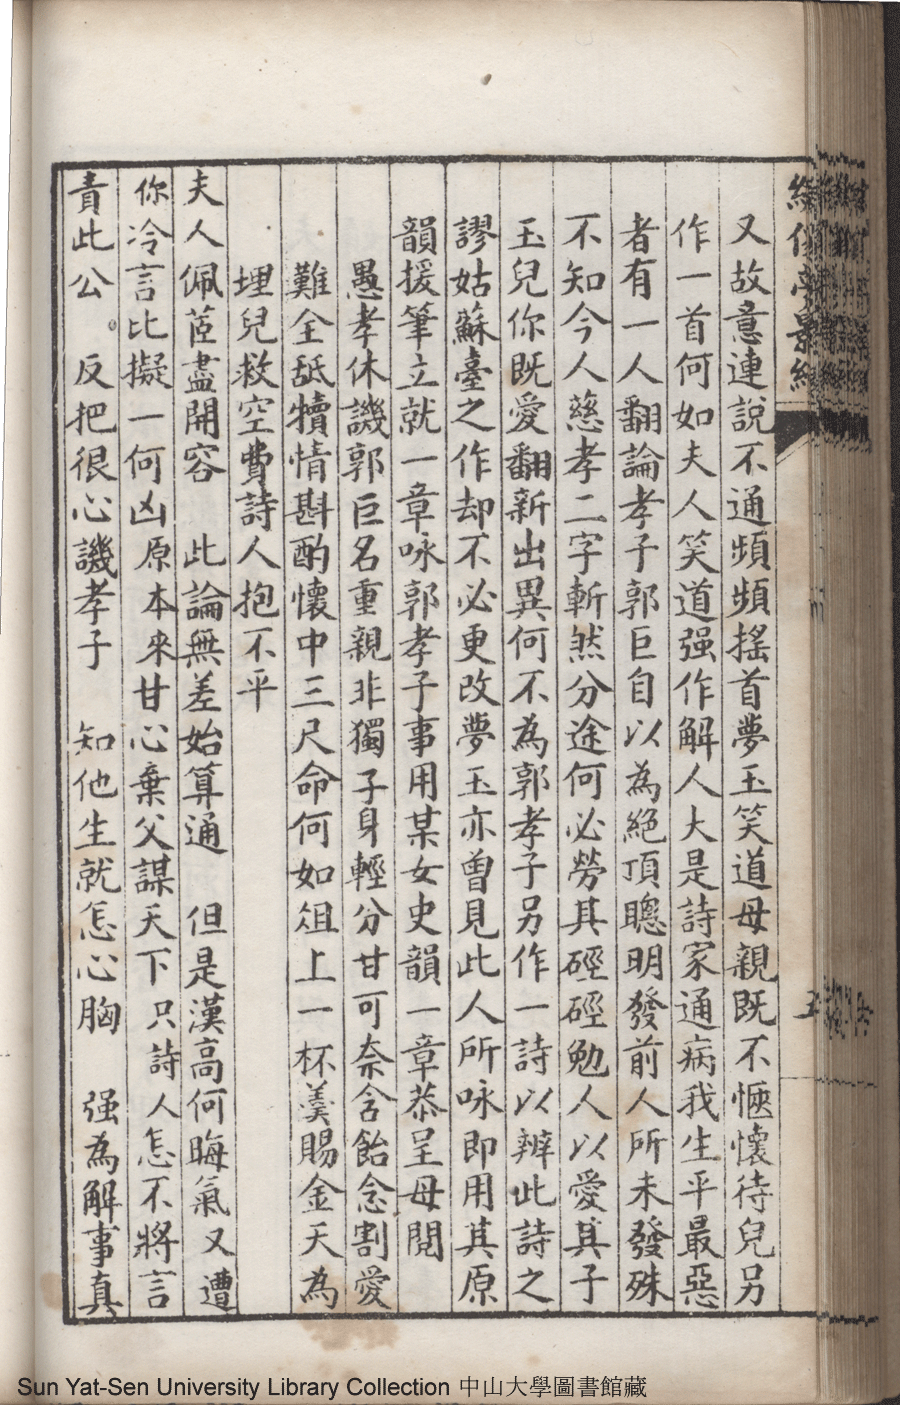 又故意連說不通頻頻搖首夢玉笑道母親既不愜懷待兒另
作一首何如夫人笑道强作解人大是詩家通病我生平最惡
者有一人翻論孝子郭巨自以為絕頂聰明發前人所未發殊
不知今人慈孝二字斬然分途何必勞其硜硜勉人以愛其子
玉兒你既愛翻新出異何不為郭孝子另作一詩以辨此詩之
謬姑蘇臺之作却不必更改夢玉亦曾見此人所咏即用其原
韻援筆立就一章咏郭孝子事用某女史韻一章恭呈母閱
愚孝休譏郭巨名重親非獨子身輕分甘可奈含飴念割愛
難全舐犢情斟酌懷中三尺命何如俎上一杯羹賜金天為
埋兒救空費詩人抱不平
夫人佩茝盡開容　此論無差始算通　但是漢高何晦氣又遭
你冷言比擬一何凶原本來甘心棄父謀天下只詩人怎不將言
責此公。反把很心譏孝子　知他生就怎心胸　强為解事真
Sun Yat-Sen University Library Collection 中山大學圖書館藏